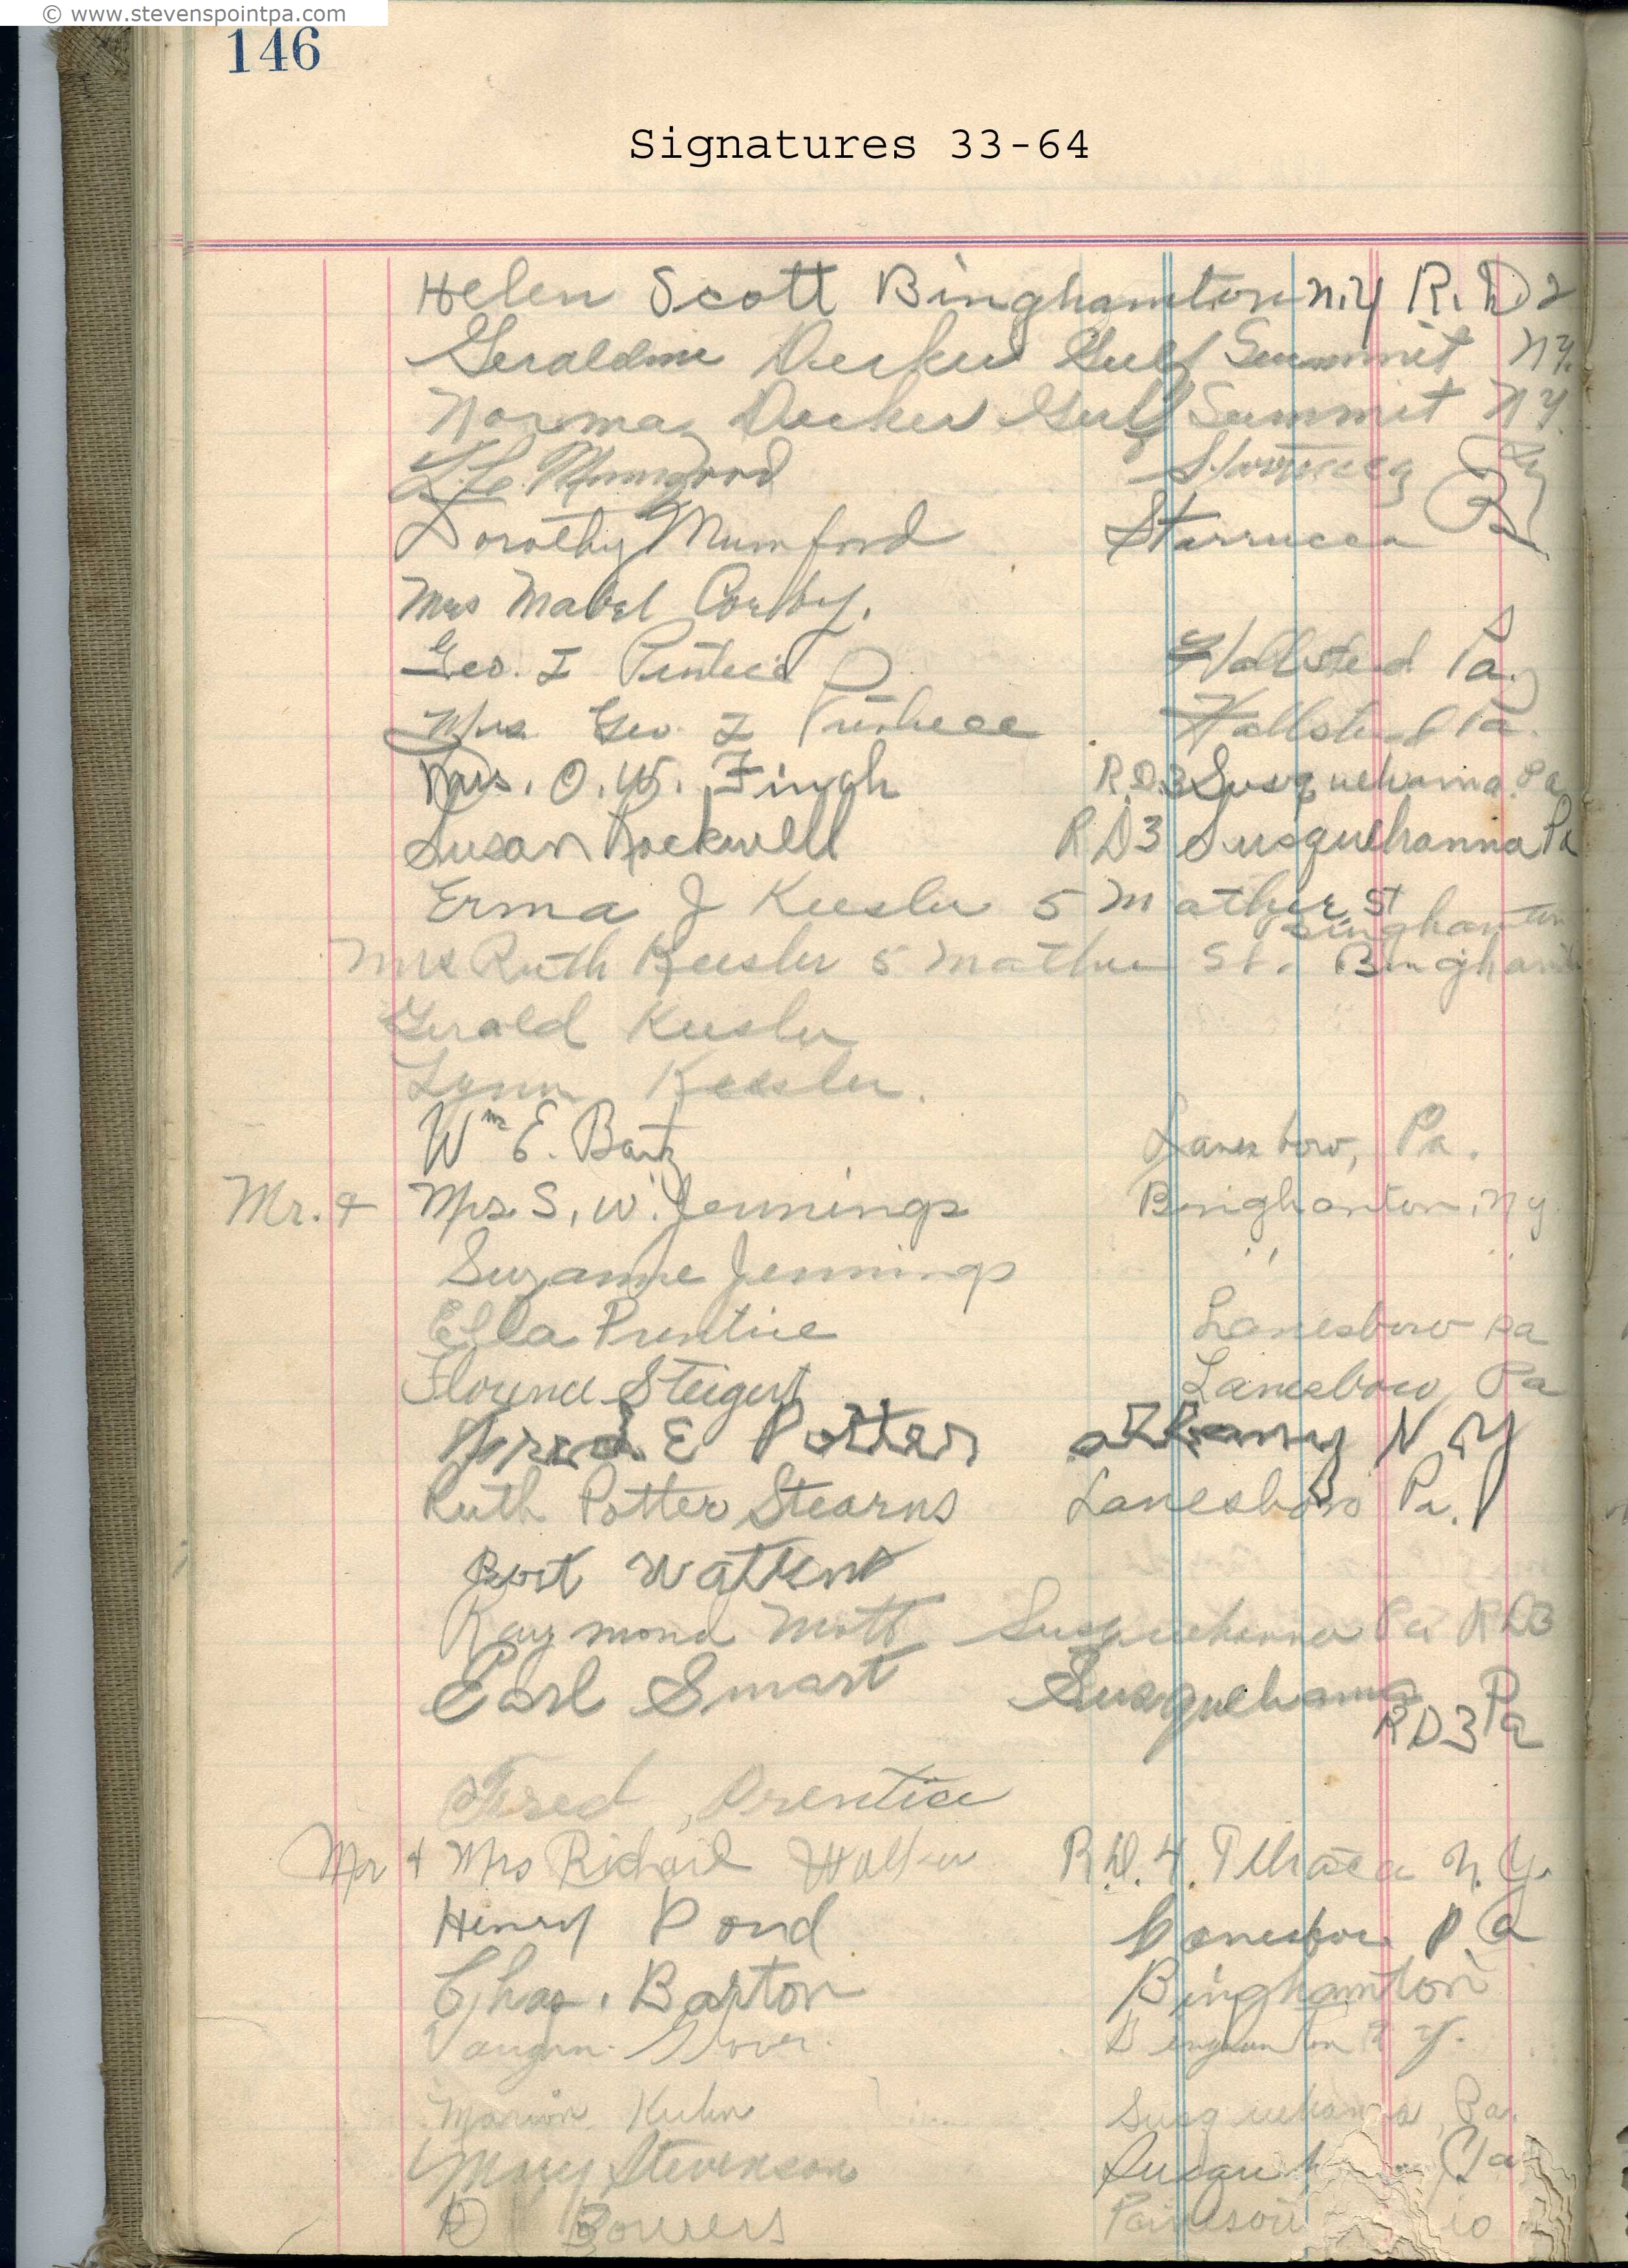 © www.stevenspointpa.com
146
Signatures 33-64
Helen Scott Binghamton N.Y R.D 2
Geraldine Decker Gulf Summit N.Y.
Norma Decker Gulf Summit N.Y.
Starrucca
Dorothy Mumford Starrucca Pa
Mrs Mabel Corby.
Geo. I Hallsted Pa.
Mrs Geo. I Hallstead Pa.
Mrs. O. W. Finch R.D.3 Susquehanna. Pa
Susan Rockwell R D 3 Susquehanna Pa
Erma J Keesler 5 Mather St
Binghamton
Mrs Ruth Keesler 5 Mather St. Binghamton
Gerald Keesler
Lynn Keesler.
Wm E. Bartz Lanesboro, Pa.
Mr. & Mrs. S. W. Jennings Binghamton, N y.
Suzanne Jennings " "
Ella Prentice Lanesboro Pa
Florence Steigert Lanesboro Pa
Fred E Potter albany N.Y
Ruth Potter Stearns Lanesboro Pa.
Raymond Mott Susquehanna Pa R D3
Earl Smart Susquehanna Pa
R D 3
Fred Prentice
Mr & Mrs Richard Walker R.D. 4. Ithaca N.Y.
Henry Pond Lanesboro P a
Chas. Barton Binghamton
Vaughn Glover. Binghamton N Y.
Marion Kuhn Susquehanna, Pa.
Mary Stevenson Pa
D